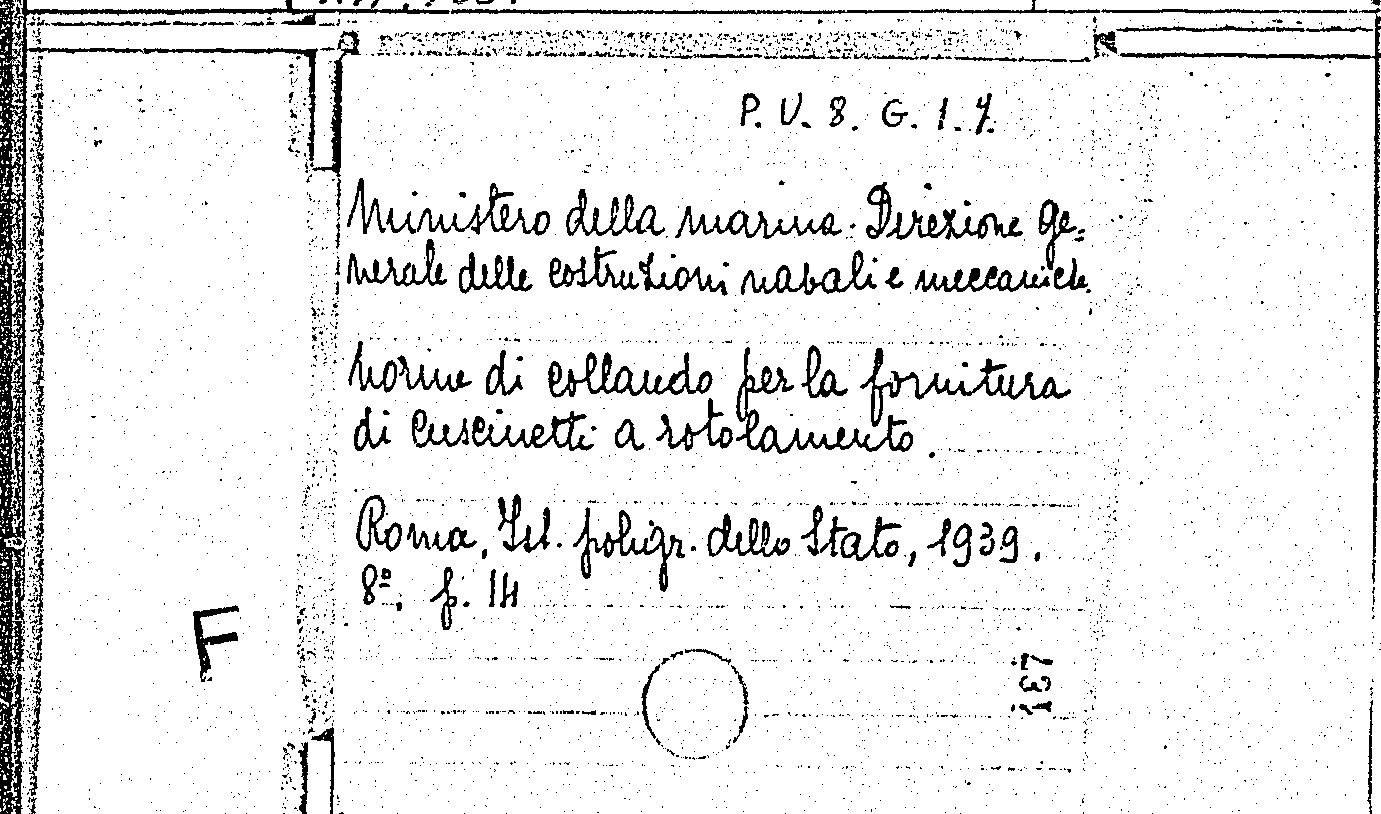 P. V. 8. G. 1. 7.
Ministero della marina. Direzione ge=
nerale delle costruzioni navali e meccaniche.
Norme di collaudo per la fornitura
di cuscinetti a rotolamento.
Roma, Ist. poligr. dello Stato, 1939.
8º. p. 14
F
137